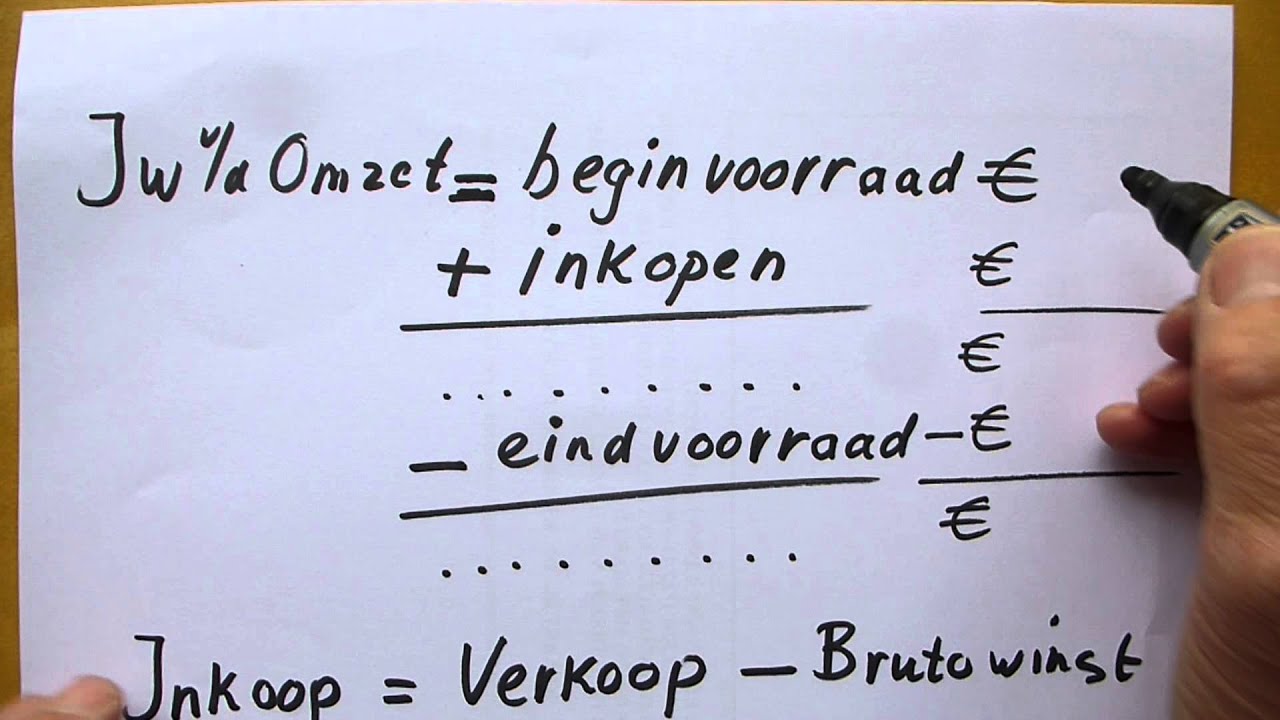 Jw v/d Omzet = beginvoorraad €
+ inkopen €
......... €
- eindvoorraad - €
......... €
Jnkoop = Verkoop - Brutowinst